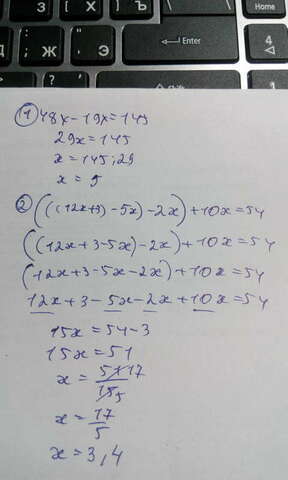 З [ Х ] Ъ Home
Д Ж Э Enter 4
① 48x-19x=145
29x=145
x=145:29
x=5
② (((12x+3)-5x)-2x)+10x=54
((12x+3-5x)-2x)+10x=54
(12x+3-5x-2x)+10x=54
12x+3-5x-2x+10x=54
15x=54-3
15x=51
x=51 17/15 5
x=17/5
x=3,4